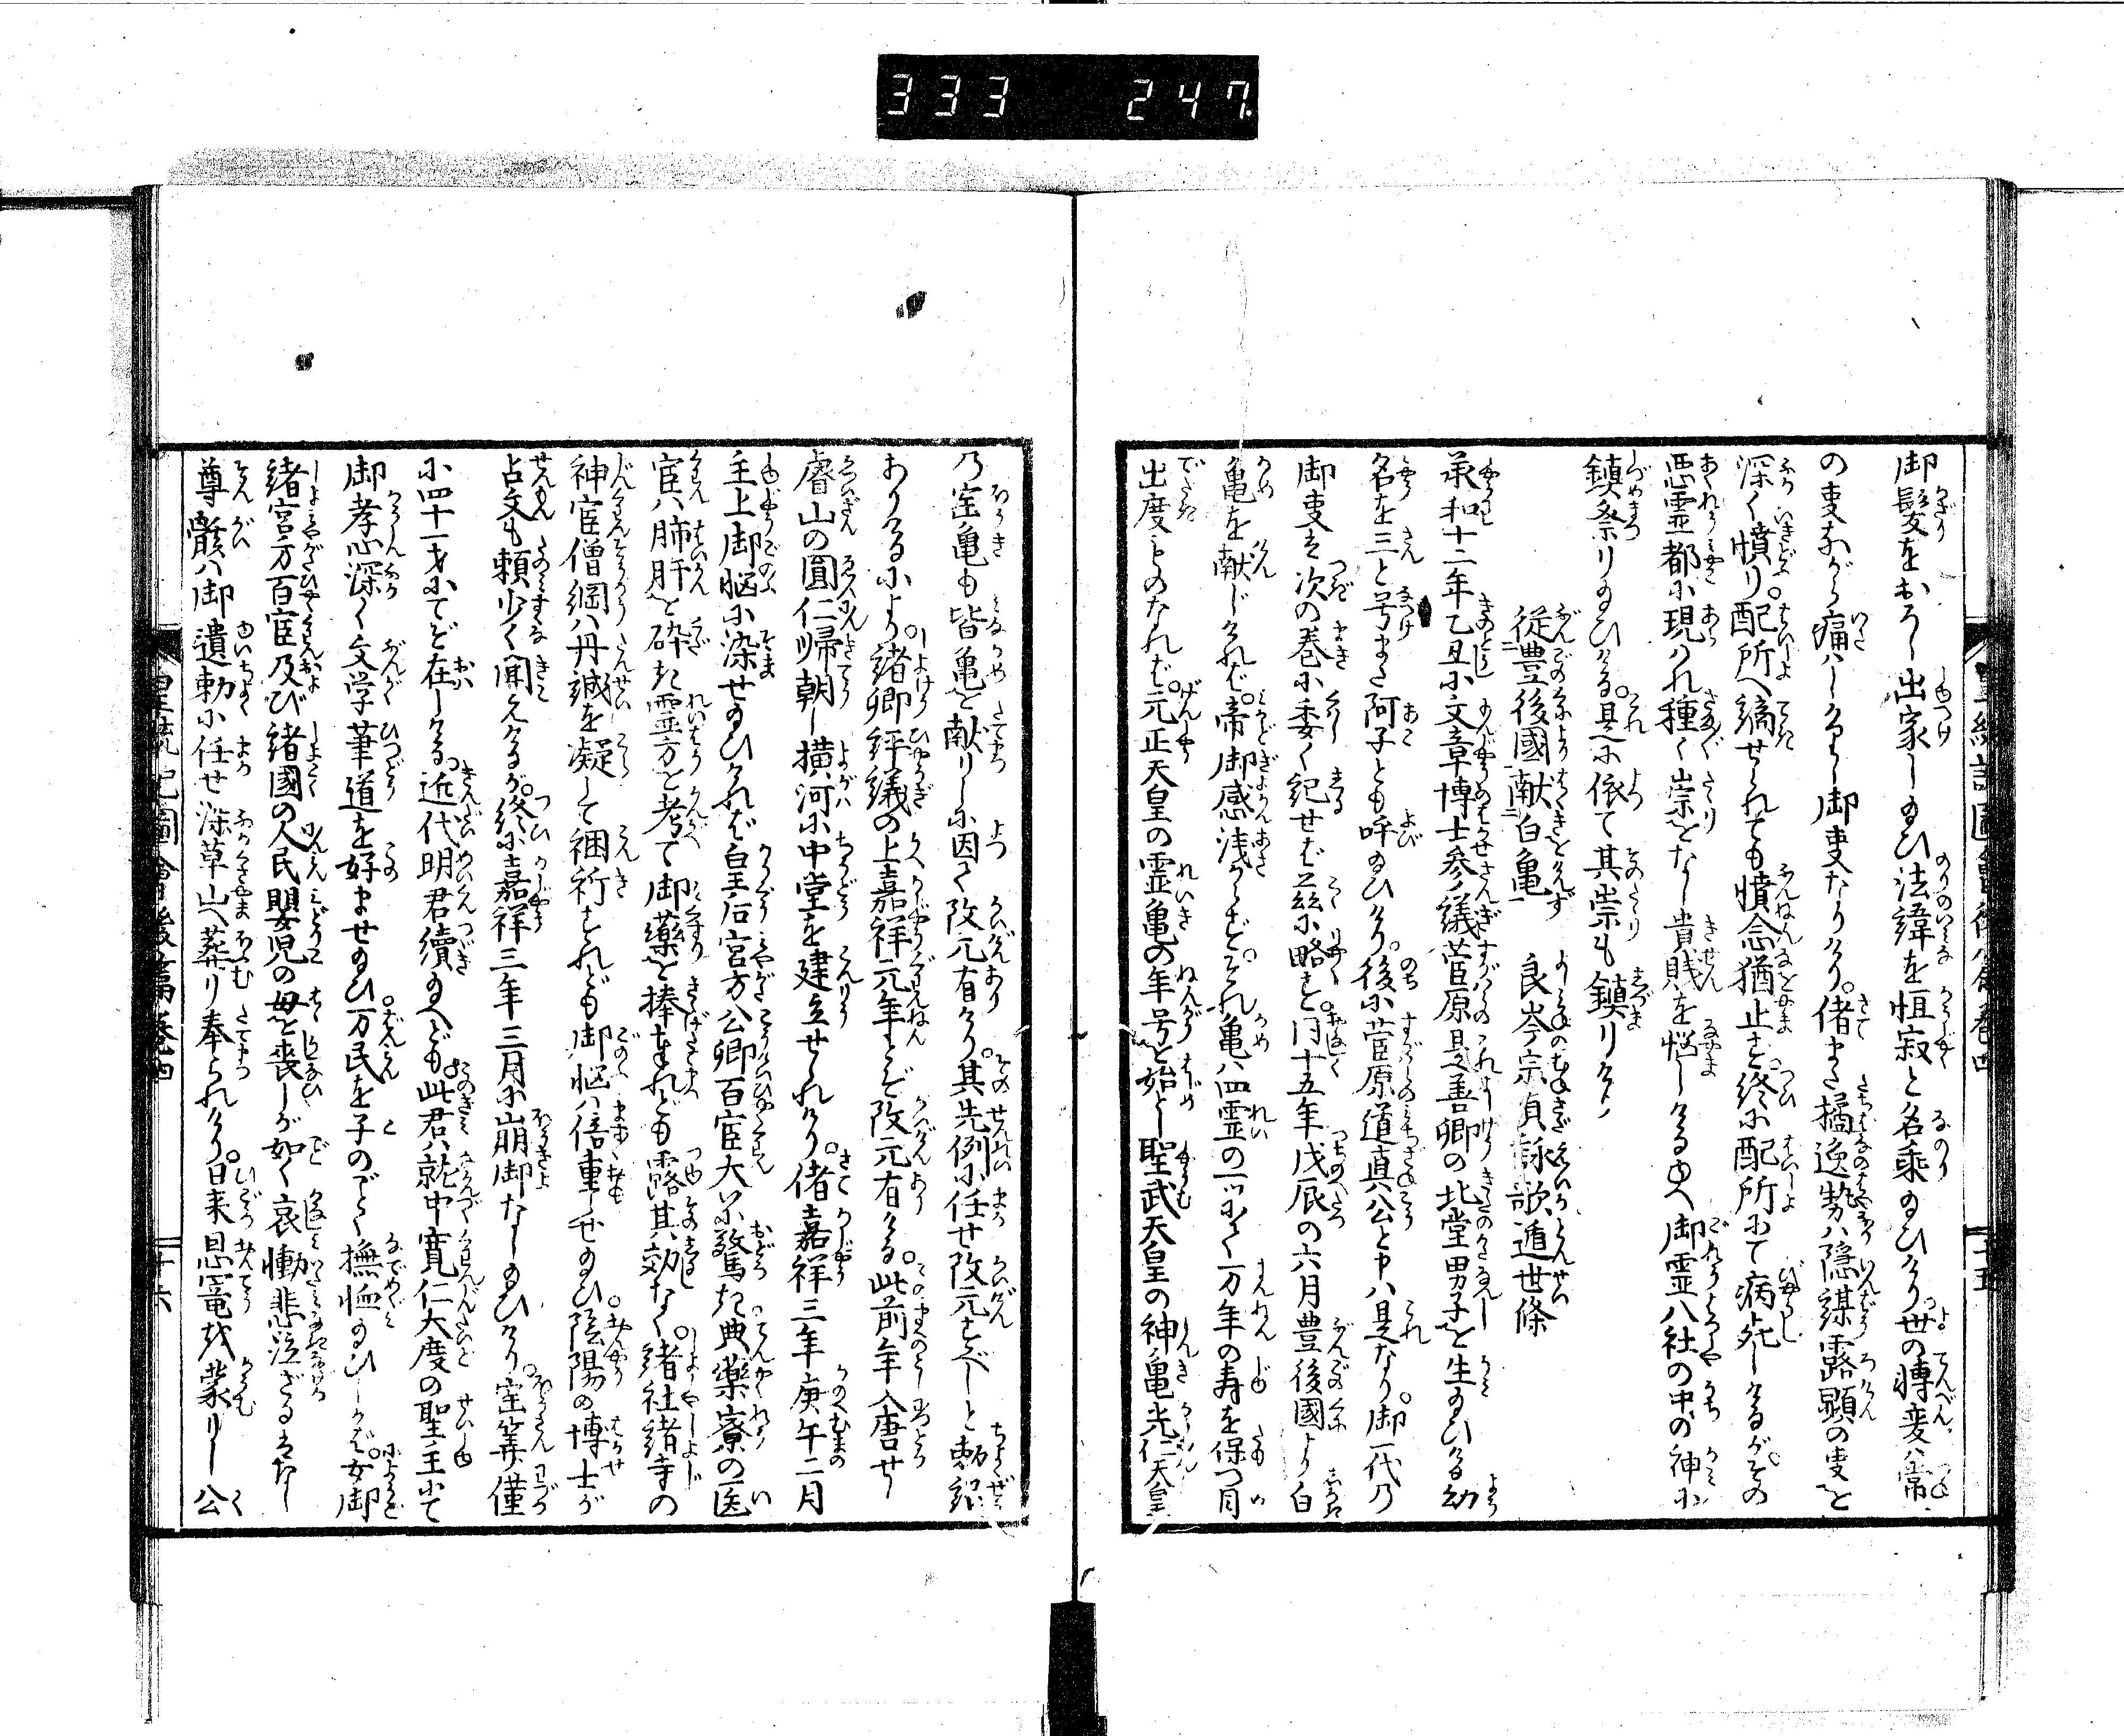 333 247
御髮をおろし出家し給ひ法諱を恒寂と名乘給ひけり世の轉変ハ常
の事ながら痛ハしかりし御事なりけり。偖また橘逸勢ハ隠謀露顕の事を
深く憤り。配所へ謫せられても憤念猶止ず。終に配所にて病死しけるが。その
悪霊都に現ハれ種〻崇をなし貴賎を悩しけるゆへ御霊八社の中の神に
鎮祭り給ひける。是に依て其崇も鎮りけり
従豊後國献白亀 良岑宗貞詠歌遁世條
承和十二年乙丑に文章博士参議菅原是善卿の北堂男子を生給ひける幼
名を三と号また阿子とも呼給ひけり。後に菅原道真公と申ハ是なり。御一代乃
御事ハ次の巻に委く紀せバ茲に略す。同十五年戊辰の六月豊後國より白
亀を献じけれバ。帝御感浅からず。それ亀ハ四霊の一にて一万年の寿を保つ目
出度ものなれバ。元正天皇の霊亀の年号を始とし聖武天皇の神亀光仁天皇
乃宝亀も皆亀を献りしに因て改元有けり。其先例に任せ改元すべしと勅詔
ありけるにより。諸卿評議の上嘉祥元年とぞ改元有ける。此前年入唐せし
睿山の圓仁帰朝し横河に中堂を建立せられけり。偖嘉祥三年庚午二月
主上御悩に染せ給ひけれバ皇后宮方公卿百宦大に驚き典薬寮の医
宦ハ肺肝を砕き霊方を考て御薬を捧まれども露其効なく。諸社諸寺の
神宦僧綱ハ丹誠を凝して祈すれども御悩ハ倍重らせ給ひ。陰陽の博士が
占文も頼少く聞えけるが。終に嘉祥三年三月に崩御なし給ひけり。宝算僅
に四十一才にてぞ在しける。近代明君續給へども。此君ハ就中寛仁大度の聖主にて
御孝心深く文学筆道を好ませ給ひ。万民を子のごとく撫恤給ひしかバ。女御
緒宮方百宦及び諸國の人民嬰児の母を喪しが如く哀慟悲泣ざるハなし
尊骸ハ御遺勅に任せ深草山へ葬り奉られけり。日来恩寵を蒙りし公
皇統記圖會後篇巻四
十六
十五